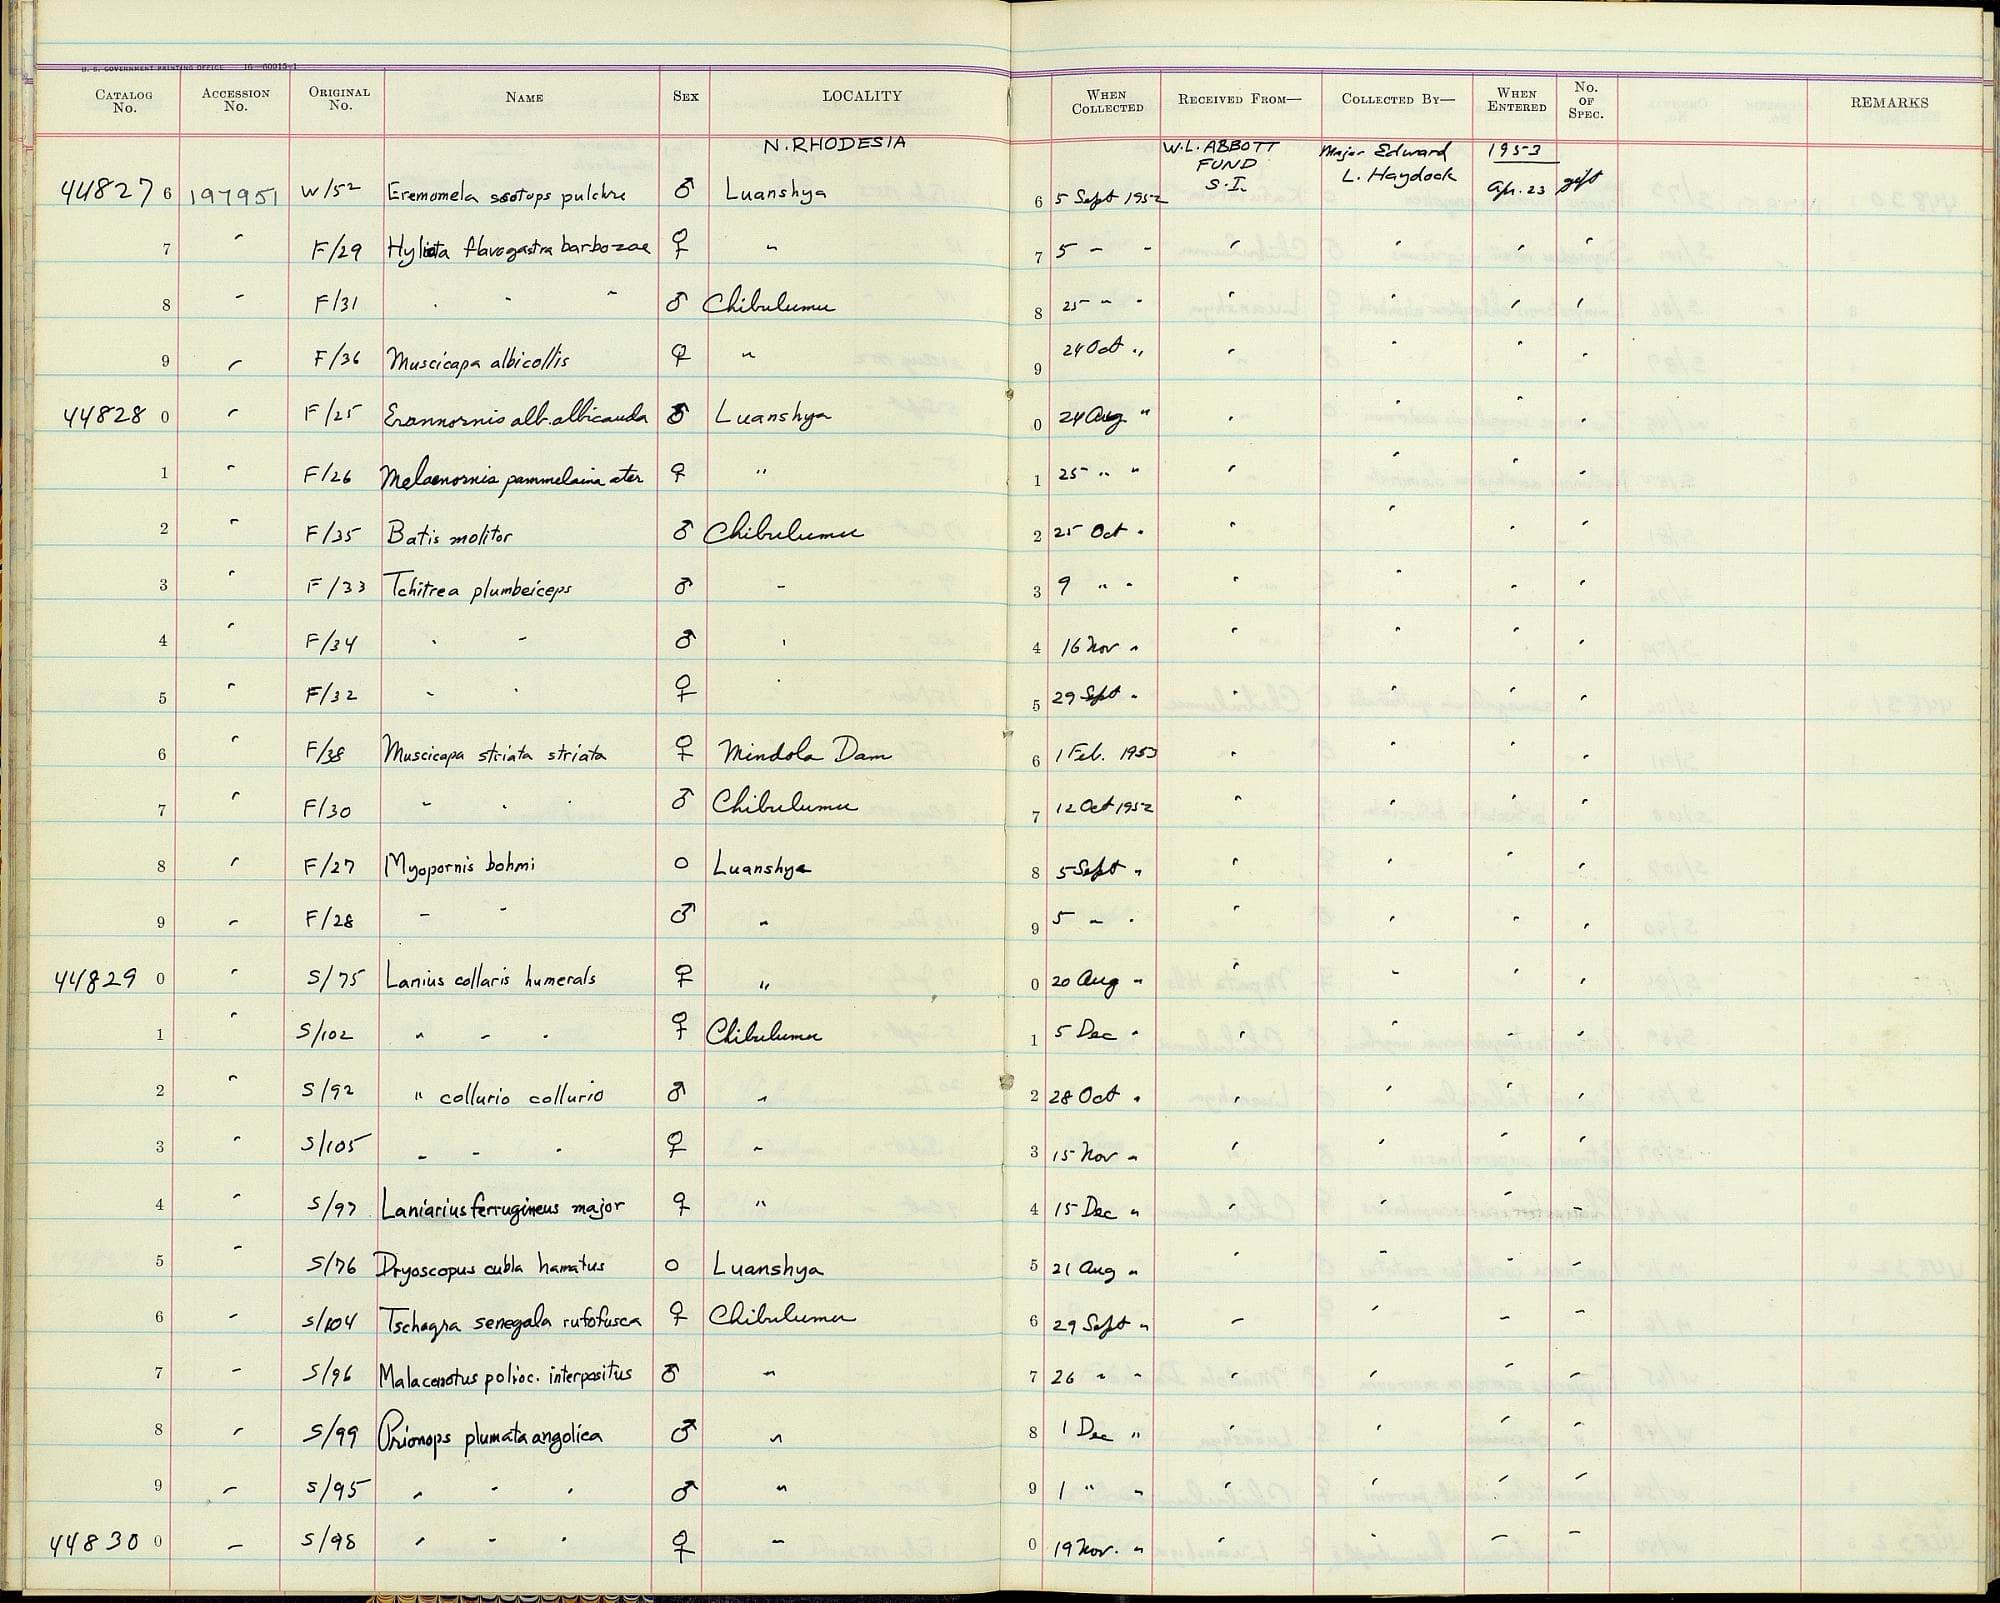 U. S. GOVERNMENT PRINTING OFFICE 16—60915-1
CATALOG No. ACCESSION No. ORIGINAL No. NAME SEX LOCALITY WHEN COLLECTED RECEIVED FROM— COLLECTED BY— WHEN ENTERED No. OF SPEC. REMARKS
N. RHODESIA W.L. ABBOTT FUND S.I. Major Edward L. Haydock 1953
44827 6 197951 W/52 Eremomela scotops pulchre ♂ Luanshya 6 5 Sept 1952 Apr. 23 gift
7 " F/29 Hyliota flavogastra barbozae ♀ " 7 5 " " " " " "
8 " F/31 " " " ♂ Chibulumu 8 25 " " " " " "
9 " F/36 Muscicapa albicollis ♀ " 9 24 Oct " " " " "
44828 0 " F/25 Erannornis alb. albicauda ♂ Luanshya 0 24 Aug " " " " "
1 " F/26 Melaenornis pammelaina ater ♀ " 1 25 " " " " " "
2 " F/35 Batis molitor ♂ Chibulumu 2 25 Oct " " " " "
3 " F/33 Tchitrea plumbeiceps ♂ " 3 9 " " " " " "
4 " F/34 " " ♂ " 4 16 Nov " " " " "
5 " F/32 " " ♀ " 5 29 Sept " " " " "
6 " F/38 Muscicapa striata striata ♀ Mindola Dam 6 1 Feb. 1953 " " " "
7 " F/30 " " " ♂ Chibulumu 7 12 Oct 1952 " " " "
8 " F/27 Myopornis bohmi O Luanshya 8 5 Sept " " " " "
9 " F/28 " " ♂ " 9 5 " " " " " "
44829 0 " S/75 Lanius collaris humerals ♀ " 0 20 Aug " " " " "
1 " S/102 " " " ♀ Chibulumu 1 5 Dec " " " " "
2 " S/92 " collurio collurio ♂ " 2 28 Oct " " " " "
3 " S/105 " " " ♀ " 3 15 Nov " " " " "
4 " S/97 Laniarius ferrugineus major ♀ " 4 15 Dec " " " " "
5 " S/76 Dryoscopus cubla hamatus O Luanshya 5 21 Aug " " " " "
6 " S/104 Tschagra senegala rufofusca ♀ Chibulumu 6 29 Sept " " " " "
7 " S/96 Malaconotus polioc. interpositus ♂ " 7 26 " " " " " "
8 " S/99 Prionops plumata angolica ♂ " 8 1 Dec " " " " "
9 " S/95 " " " ♂ " 9 1 " " " " " "
44830 0 " S/98 " " " ♀ " 0 19 Nov. " " " " "